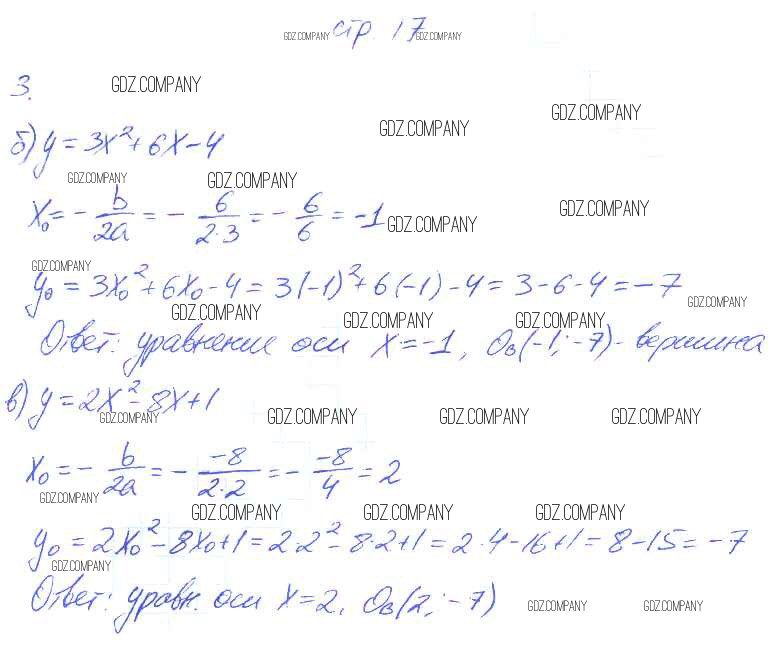 GDZ.COMPANY стр. 17 GDZ.COMPANY
3. GDZ.COMPANY
GDZ.COMPANY GDZ.COMPANY
б) y = 3x² + 6x - 4
GDZ.COMPANY GDZ.COMPANY
x₀ = - b/2a = - 6/2·3 = - 6/6 = -1 GDZ.COMPANY GDZ.COMPANY
GDZ.COMPANY
y₀ = 3x₀² + 6x₀ - 4 = 3(-1)² + 6(-1) - 4 = 3 - 6 - 4 = -7
GDZ.COMPANY
GDZ.COMPANY GDZ.COMPANY GDZ.COMPANY
Ответ: уравнение оси x = -1, Oв(-1; -7) - вершина
в) y = 2x² - 8x + 1
GDZ.COMPANY GDZ.COMPANY GDZ.COMPANY GDZ.COMPANY
x₀ = - b/2a = - -8/2·2 = - -8/4 = 2
GDZ.COMPANY
GDZ.COMPANY GDZ.COMPANY GDZ.COMPANY
y₀ = 2x₀² - 8x₀ + 1 = 2·2² - 8·2 + 1 = 2·4 - 16 + 1 = 8 - 15 = -7
GDZ.COMPANY
Ответ: уравн. оси x = 2, Oв(2; -7)
GDZ.COMPANY GDZ.COMPANY